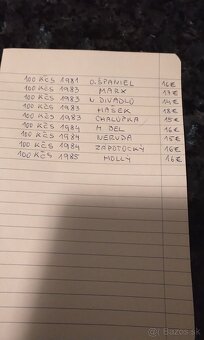 100 KČS 1981 O. ŠPANIEL 16€
100 KČS 1983 MARX 17€
100 KČS 1983 N DIVADLO 14€
100 KČS 1983 HAŠEK 18€
100 KČS 1983 CHALUPKA 15€
100 KČS 1984 M DEL 16€
100 KČS 1984 NERUDA 15€
100 KČS 1984 ZÁPOTOCKÝ 16€
100 KČS 1985 HOLLÝ 16€
bazos.sk